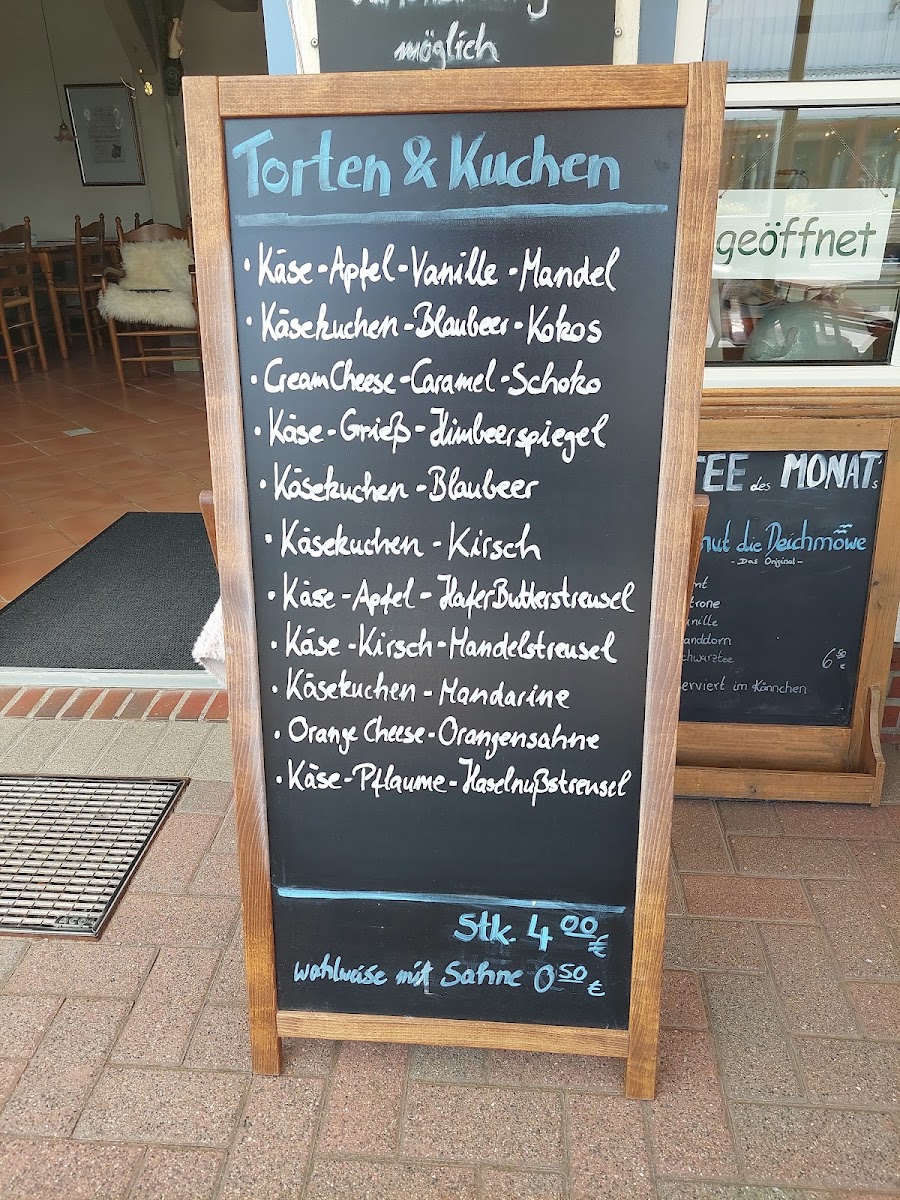 möglich
Torten & Kuchen
• Käse - Apfel - Vanille - Mandel
• Käsekuchen - Blaubeer - Kokos
• CreamCheese - Caramel - Schoko
• Käse - Grieß - Himbeerspiegel
• Käsekuchen - Blaubeer
• Käsekuchen - Kirsch
• Käse - Apfel - HaferButterstreusel
• Käse - Kirsch - Mandelstreusel
• Käsekuchen - Mandarine
• Orange Cheese - Orangensahne
• Käse - Pflaume - Haselnußstreusel
Stk. 4 00 €
wahlweise mit Sahne 0 50 €
geöffnet
TEE des MONAT's
die Deichmöwe
- Das Original -
6 50 €
im Kännchen